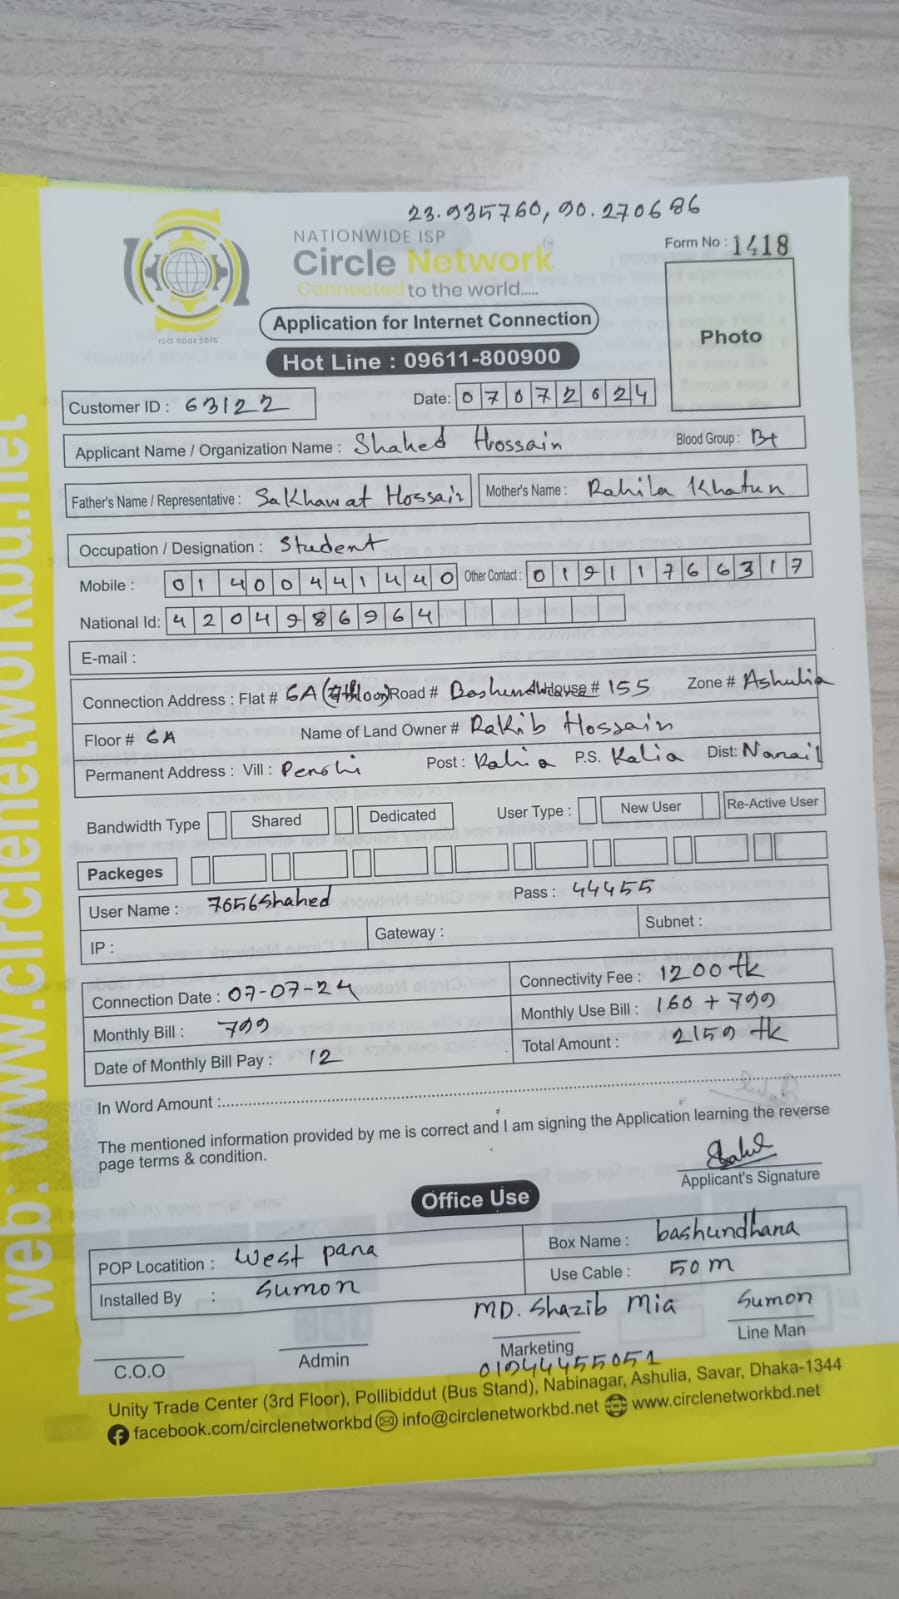 23.935760, 90.270686
NATIONWIDE ISP
Form No : 1418
Circle Network
Connected to the world.....
ISO 9001:2015
Application for Internet Connection
Photo
Hot Line : 09611-800900
Customer ID : 63122 Date: 07072024
Applicant Name / Organization Name : Shahed Hossain Blood Group : B+
Father's Name / Representative : Sakhawat Hossain Mother's Name : Rahila Khatun
Occupation / Designation : Student
Mobile : 01400441440 Other Contact : 01911766317
National Id: 4204986964
E-mail :
Connection Address : Flat # 6A Road # House # 155 Zone # Ashulia
Floor # 6A Name of Land Owner # Rakib Hossain
Permanent Address : Vill : Post : P.S. Kalia Dist: Narail
Bandwidth Type Shared Dedicated User Type : New User Re-Active User
Packeges
User Name : 7656Shahed Pass : 44455
IP : Gateway : Subnet :
Connection Date : 07-07-24 Connectivity Fee : 1200 tk
Monthly Bill : 799 Monthly Use Bill : 160 + 799
Date of Monthly Bill Pay : 12 Total Amount : 2159 tk
In Word Amount :
The mentioned information provided by me is correct and I am signing the Application learning the reverse
page terms & condition.
Applicant's Signature
Office Use
POP Locatition : West para Box Name : bashundhara
Installed By : Sumon Use Cable : 50 m
MD. Shazib Mia Sumon
C.O.O Admin Marketing Line Man
01944455051
Unity Trade Center (3rd Floor), Pollibiddut (Bus Stand), Nabinagar, Ashulia, Savar, Dhaka-1344
facebook.com/circlenetworkbd info@circlenetworkbd.net www.circlenetworkbd.net
web: www.circlenetworkbd.net